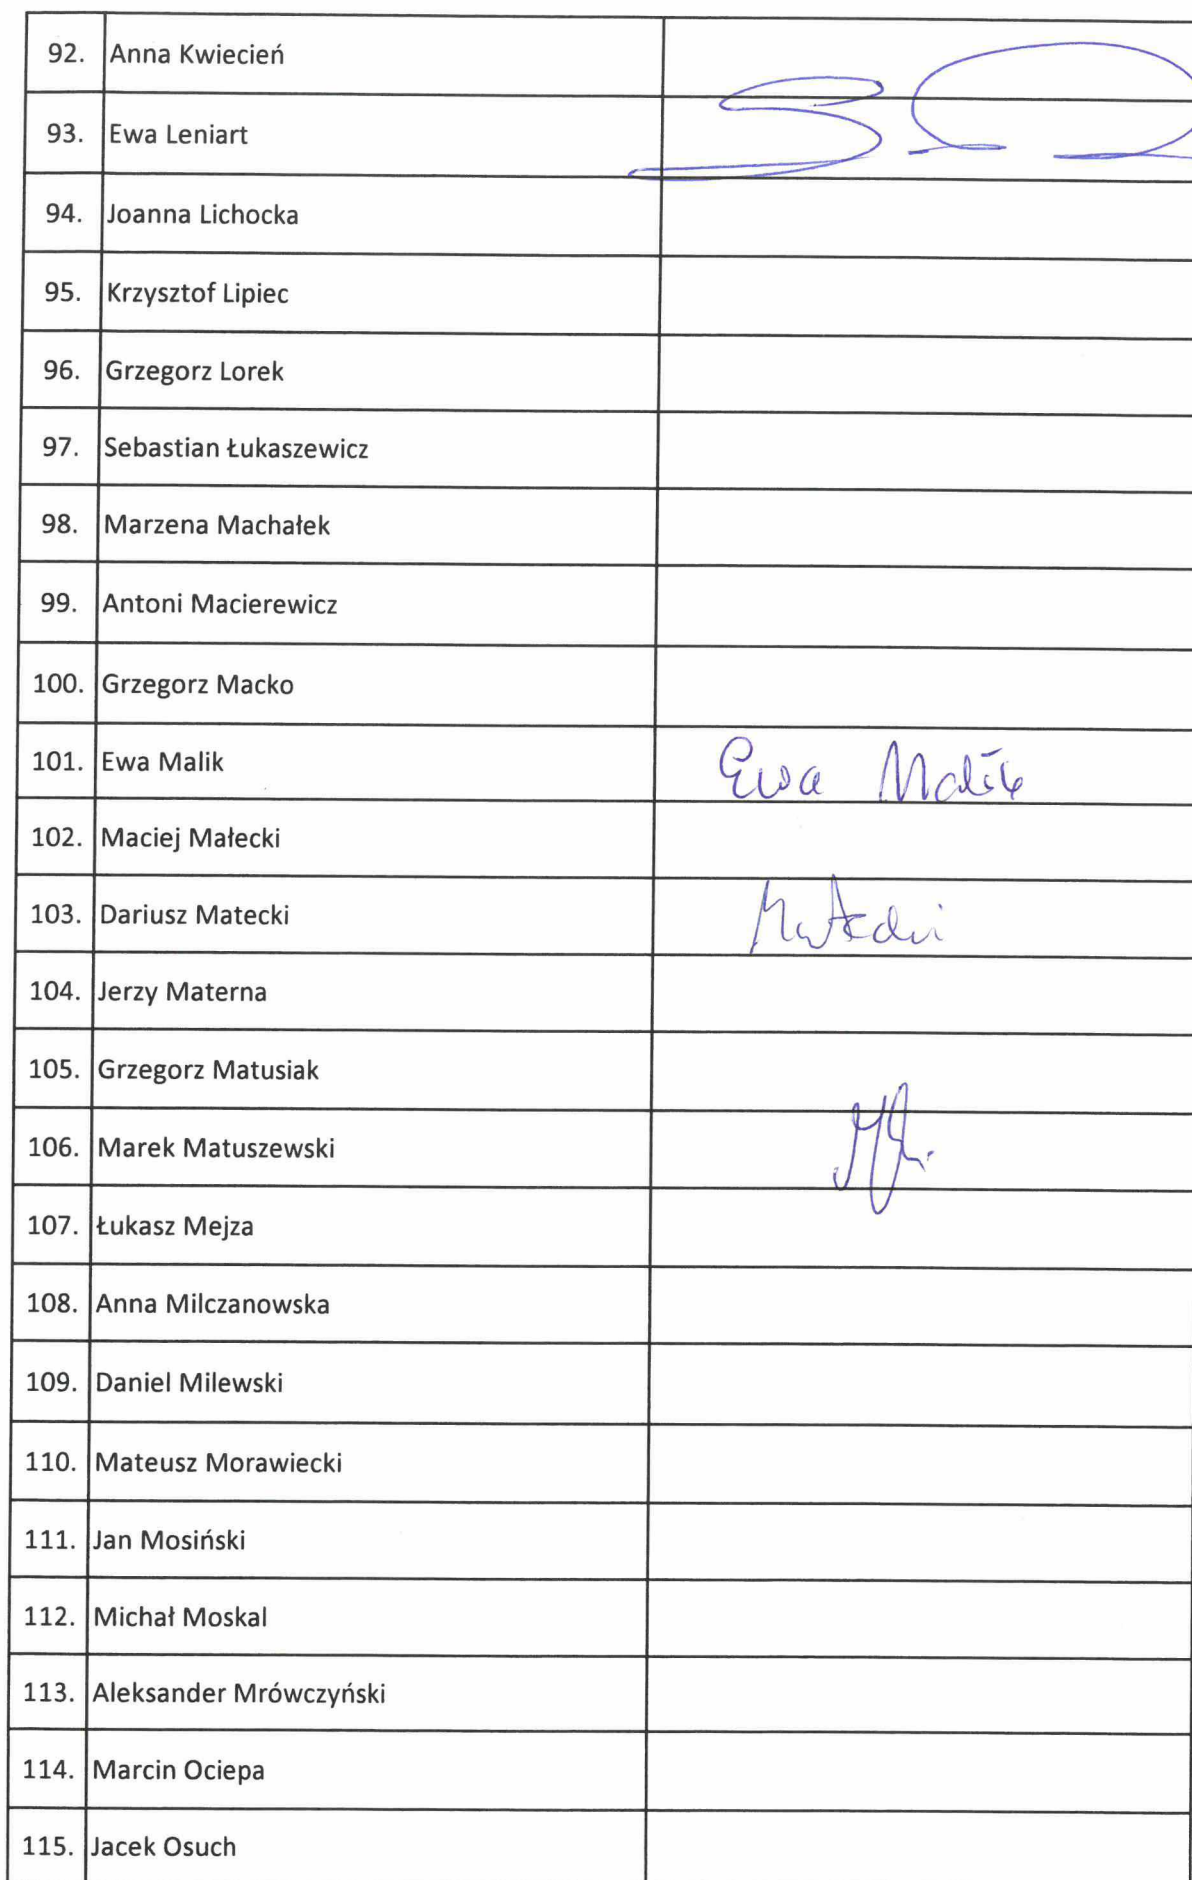 92. Anna Kwiecień
93. Ewa Leniart
94. Joanna Lichocka
95. Krzysztof Lipiec
96. Grzegorz Lorek
97. Sebastian Łukaszewicz
98. Marzena Machałek
99. Antoni Macierewicz
100. Grzegorz Macko
101. Ewa Malik Ewa Malik
102. Maciej Małecki
103. Dariusz Matecki Matecki
104. Jerzy Materna
105. Grzegorz Matusiak
106. Marek Matuszewski
107. Łukasz Mejza
108. Anna Milczanowska
109. Daniel Milewski
110. Mateusz Morawiecki
111. Jan Mosiński
112. Michał Moskal
113. Aleksander Mrówczyński
114. Marcin Ociepa
115. Jacek Osuch